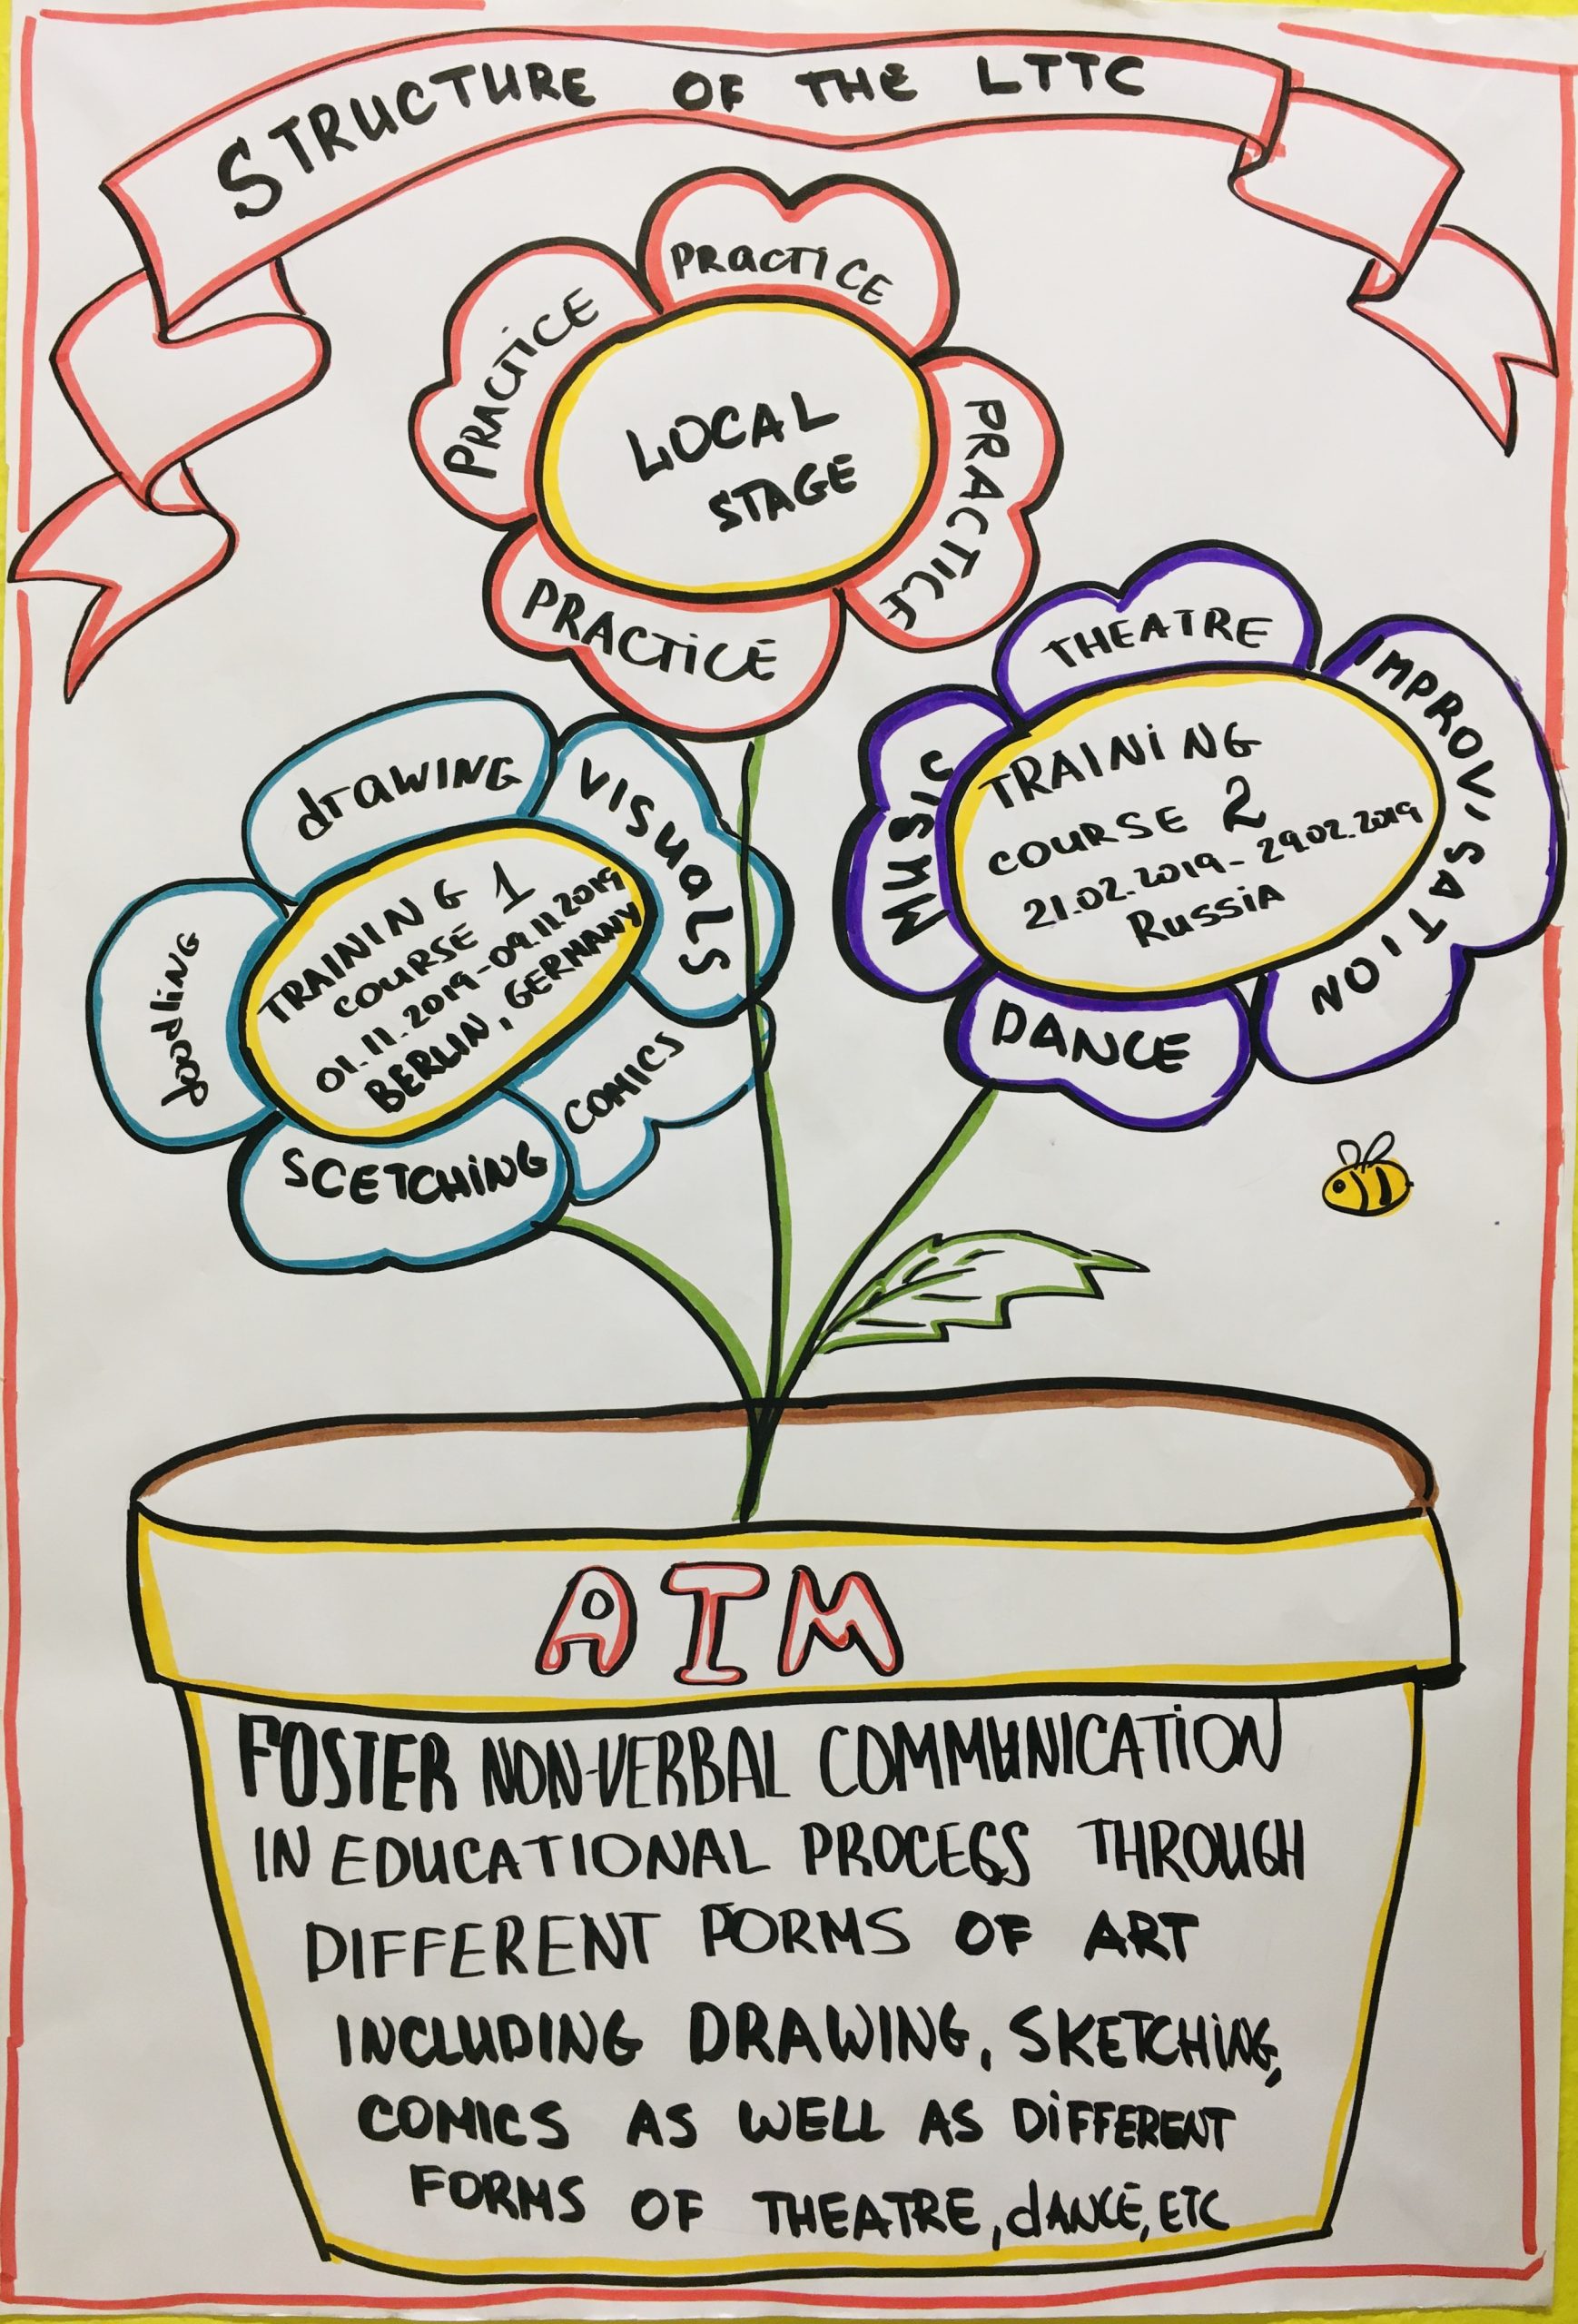 STRUCTURE OF THE LTTC
PRACTICE
PRACTICE
PRACTICE
PRACTICE
LOCAL
STAGE
THEATRE
IMPROVISATION
MUSIC
DANCE
TRAINING
COURSE 2
21.02.2019 - 29.02.2019
RUSSIA
drawing
VISUALS
doodling
COMICS
SCETCHING
TRAINING
COURSE 1
01.11.2019-09.11.2019
BERLIN, GERMANY
AIM
FOSTER NON-VERBAL COMMUNICATION
IN EDUCATIONAL PROCESS THROUGH
DIFFERENT FORMS OF ART
INCLUDING DRAWING, SKETCHING,
COMICS AS WELL AS DIFFERENT
FORMS OF THEATRE, dANCE, ETC